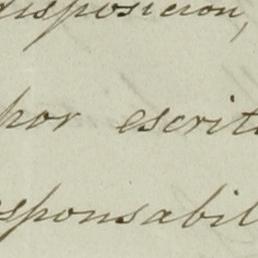 disposicion,
por escrit
sponsabil